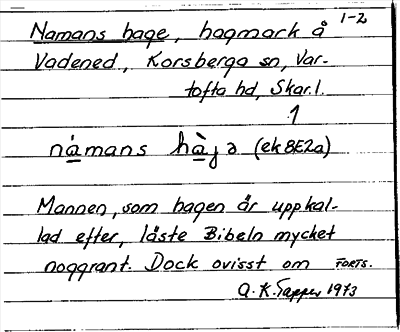 1-2
Namans hage, hagmark å
Vadened., Korsberga sn, Var-
tofta hd, Skar.l.
1
nàmans hàja (ek8E2a)
Mannen, som hagen är uppkal-
lad efter, läste Bibeln mycket
noggrant. Dock ovisst om FORTS.
A.K. Tapper 1973